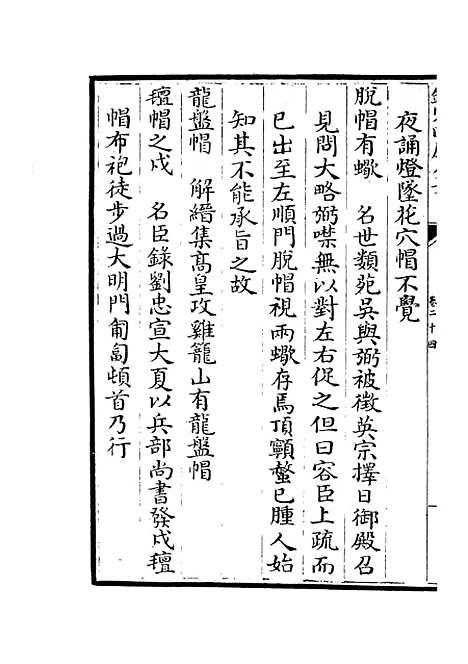 夜誦燈墜花穴帽不覺
脫帽有蠍　名世類苑吳與弼被徵英宗擇日御殿召
見問大略弼噤無以對左右促之但曰容臣上疏而
已出至左順門脫帽視兩蠍存焉頂顖螫已腫人始
知其不能承旨之故
龍盤帽　解縉集高皇攻雞籠山有龍盤帽
氊帽之戍　名臣錄劉忠宣大夏以兵部尚書發戍氊
帽布袍徒步過大明門匍匐頓首乃行
卷二十四